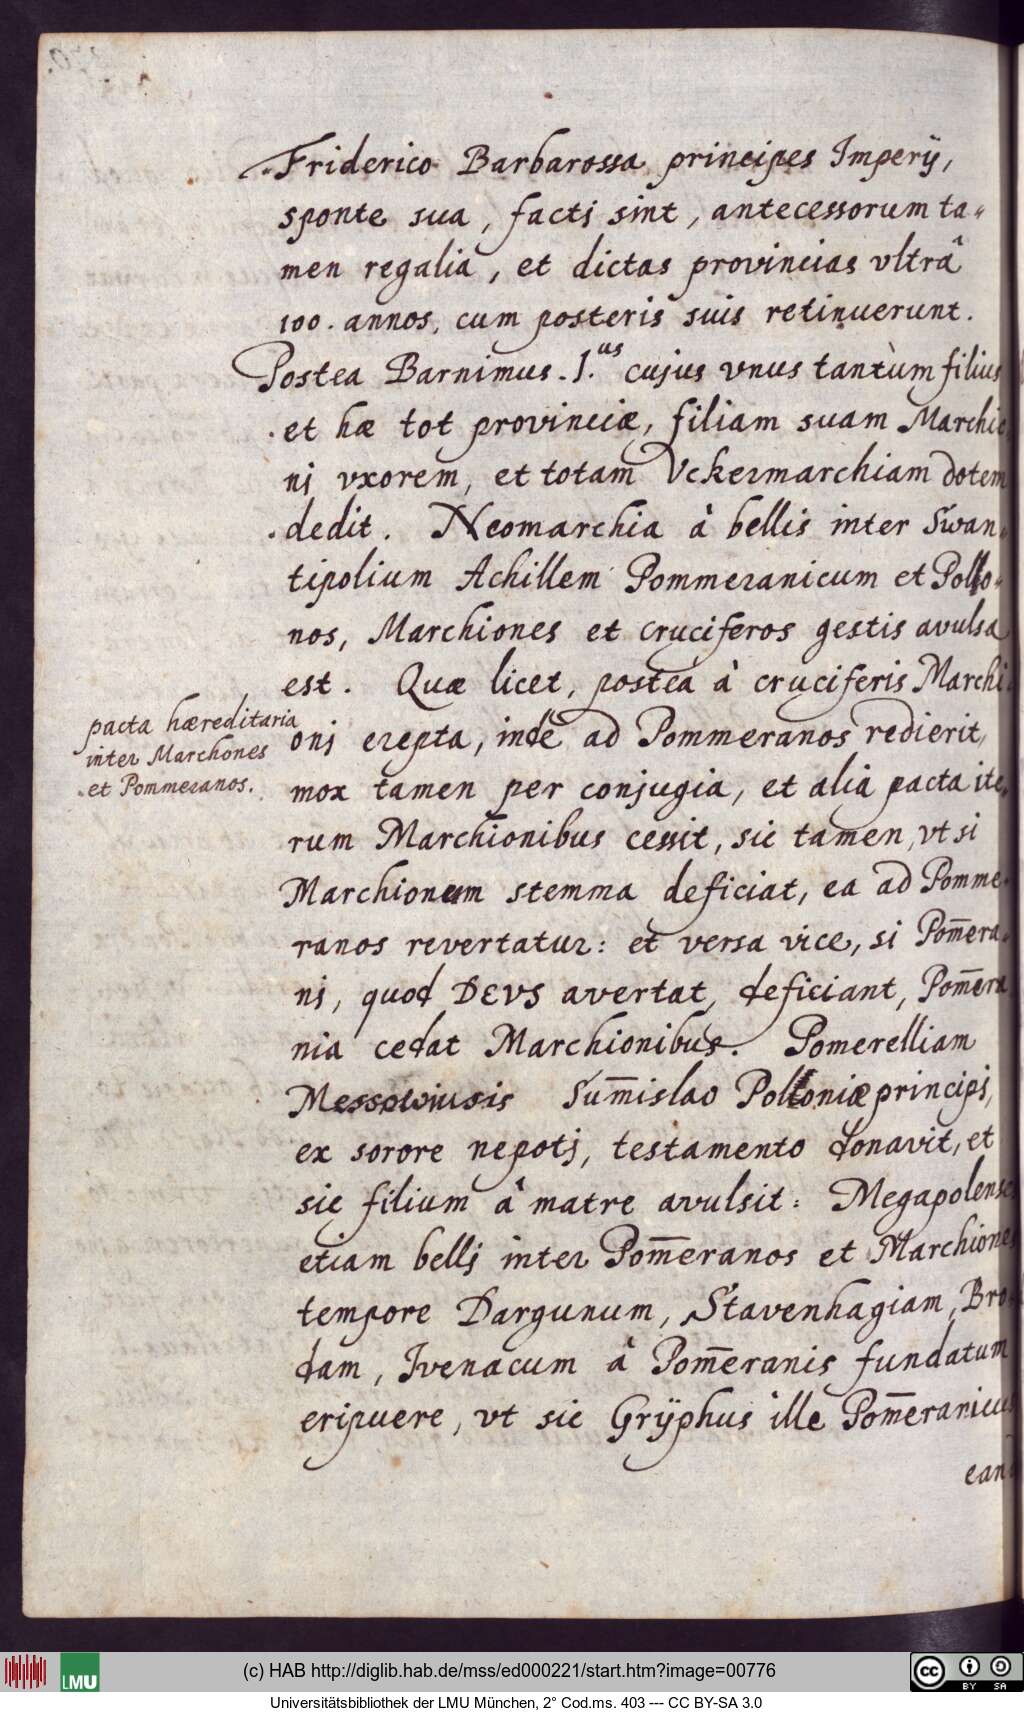 Friderico Barbarossa principes Imperÿ,
sponte sua, facti sint, antecessorum ta-
men regalia, et dictas provincias vltrâ
100. annos, cum posteris suis retinuerunt.
Postea Barnimus. I.us cujus vnus tantùm filius
et hæ tot provinciæ, filiam suam Marchio
ni vxorem, et totam Vckermarchiam dotem
dedit. Neomarchia à bellis inter Swan-
tipolium Achillem Pommeranicum et Pollo-
nos, Marchiones et cruciferos gestis avulsa
est. Quæ licet, postea à cruciferis Marchi
pacta hæreditaria
inter Marchones
et Pommeranos.
oni erepta, inde ad Pommeranos redierit,
mox tamen per conjugia, et alia pacta ite-
rum Marchionibus cessit, sic tamen, vt si
Marchionum stemma deficiat, ea ad Pomme-
ranos revertatur: et versa vice, si Pom̄era-
ni, quod DEVS avertat, deficiant, Pom̄era
nia cedat Marchionibus. Pomerelliam
Sum̄islao Polloniæ principi,
ex sorore nepoti, testamento donavit, et
sic filium à matre avulsit: Megapolenses
etiam belli inter Pom̄eranos et Marchiones
tempore Dargunum, Stavenhagiam, Bro-
dam, Ivenacum à Pom̄eranis fundatum
eripuere, vt sic Grÿphus ille Pom̄eranicus
(c) HAB http://diglib.hab.de/mss/ed000221/start.htm?image=00776
LMU
BY SA
Universitätsbibliothek der LMU München, 2° Cod.ms. 403 --- CC BY-SA 3.0